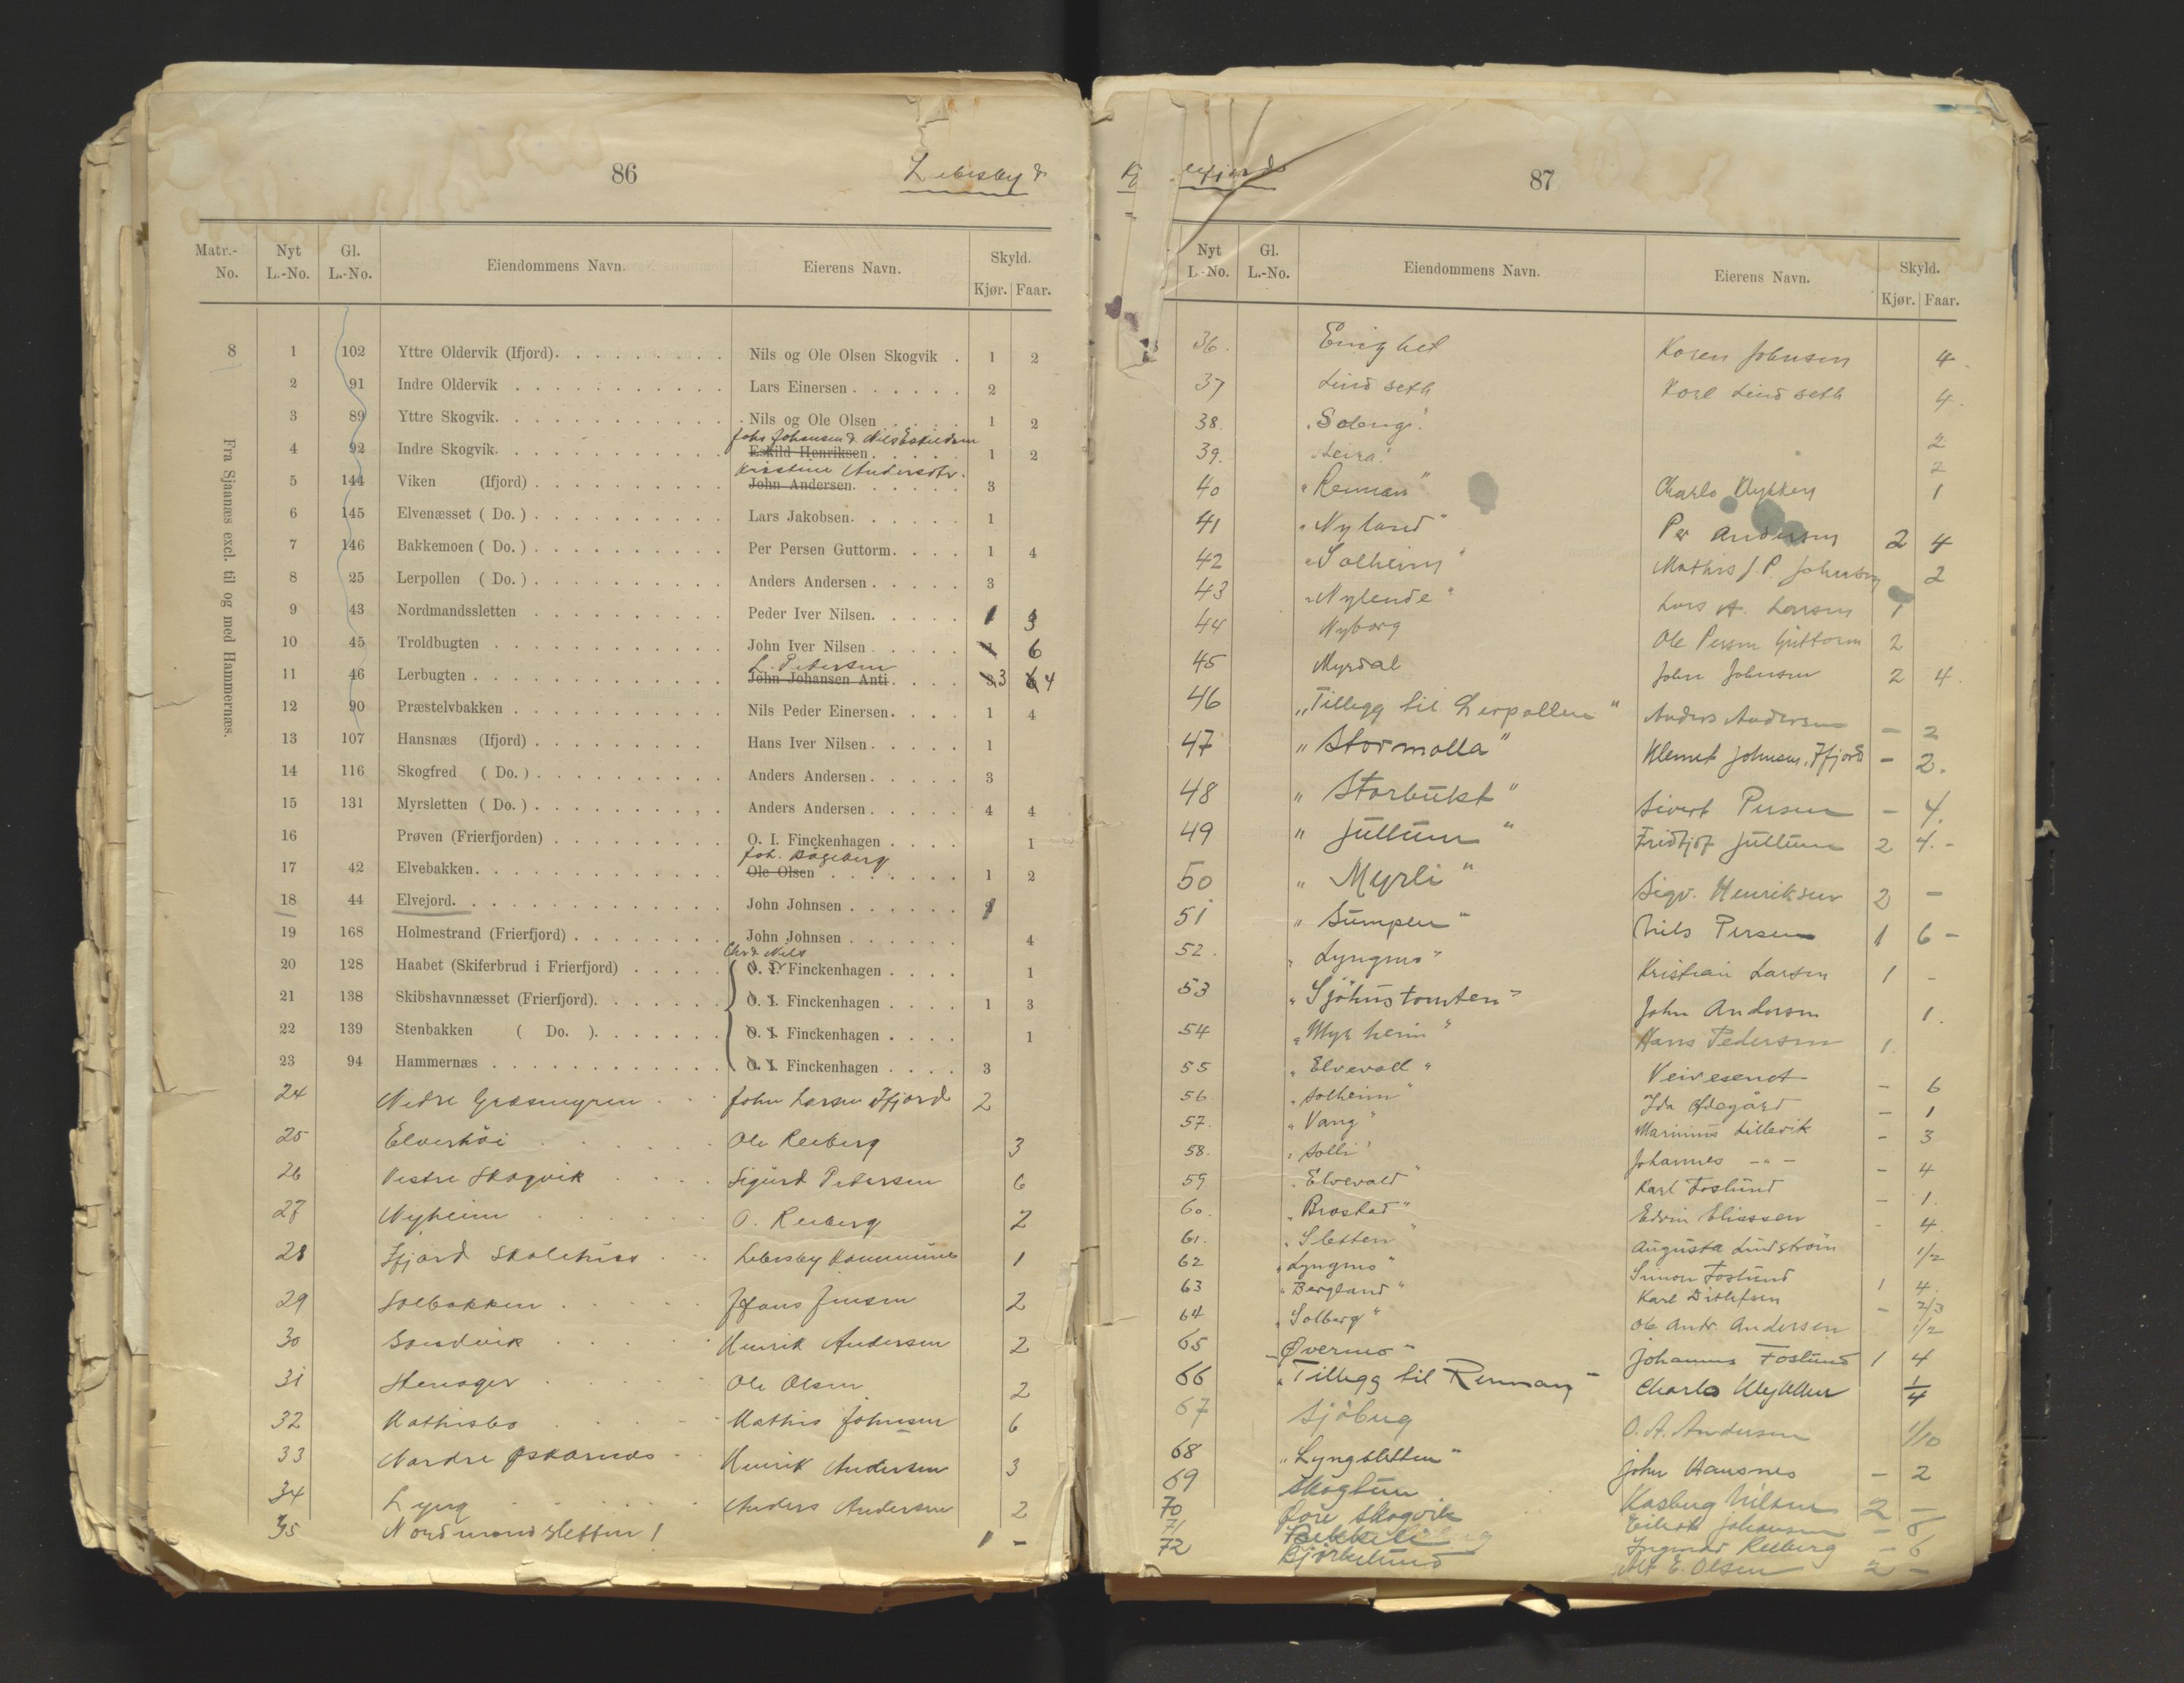 86
Lebesby &
Matr.-No. Nyt L.-No. Gl. L.-No. Eiendommens Navn. Eierens Navn. Skyld. Kjør. Faar.
Fra Sjaanæs excl. til og med Hammernæs.
8 1 102 Yttre Oldervik (Ifjord). Nils og Ole Olsen Skogvik . 1 2
2 91 Indre Oldervik Lars Einersen 2
3 89 Yttre Skogvik. Nils og Ole Olsen 1 2
Johs Johansen & Nils Eskildsen
4 92 Indre Skogvik. Eskild Henriksen 1 2
Kristine Andersdtr.
5 144 Viken (Ifjord) John Andersen. 3
6 145 Elvenæsset ( Do. ) Lars Jakobsen. 1
7 146 Bakkemoen ( Do. ) Per Persen Guttorm. 1 4
8 25 Lerpollen ( Do. ) Anders Andersen 3
9 43 Nordmandssletten Peder Iver Nilsen. 1 3
10 45 Troldbugten John Iver Nilsen 1 6
L. Pedersen
11 46 Lerbugten John Johansen Anti 3 6 4
12 90 Præstelvbakken Nils Peder Einersen. 1 4
13 107 Hansnæs (Ifjord) Hans Iver Nilsen 1
14 116 Skogfred ( Do. ) Anders Andersen 3
15 131 Myrsletten ( Do. ) Anders Andersen 4 4
16 Prøven (Frierfjorden) O. I. Finckenhagen 1
Joh. Bogeberg
17 42 Elvebakken. Ole Olsen 1 2
18 44 Elvejord. John Johnsen
19 168 Holmestrand (Frierfjord) John Johnsen 4
Chr. Nils
20 128 Haabet (Skiferbrud i Frierfjord) O. I. Finckenhagen 1
21 138 Skibshavnnæsset (Frierfjord). O. I. Finckenhagen 1 3
22 139 Stenbakken ( Do. ). O. I. Finckenhagen 1
23 94 Hammernæs O. I. Finckenhagen 3
24 Nedre Græsmyren John Larsen Ifjord 2
25 Elverhöi Ole Reiberg 3
26 Vestre Skogvik Sigurd Pedersen 6
27 Nyheim O. Reiberg 2
28 Ifjord Skolehus Lebesby Kommune 1
29 Solbakken Hans Jensen 2
30 Henrik Andersen 2
31 Stenager Ole Olsen 2
32 Mathisbo Mathis Johnsen 6
33 Nordre Oskarnes Henrik Andersen 3
34 Lyng Anders Andersen 2
35 Nordmandsletten 1 1 -
87
Nyt L.-No. Gl. L.-No. Eiendommens Navn. Eierens Navn. Skyld. Kjør. Faar.
36. Enighet Koren Johnsen 4.
37 Lindseth Karl Lindseth 4.
38. "Soleng" 2
39. "Leira" 2
40 "Rennan" Charls Klykken 1
41 "Nyland" Per Andersen 2 4
42 "Solheim" Mathis J P. Johnsen 2
43 "Nylende" Lars A. Larsen 1
44 Nyborg Ole Persen Guttorm 2
45 Myrdal John Johnsen 2 4.
46 "Tillegg til Lerpollen" Anders Andersen - 2
47 "Stormolla" Klemet Johnsen, Ifjord - 2.
48 "Storbukt" Sivert Persen - 4.
49 "Jullum" Fridtjof Jullum 2 4.-
50 "Myrli" Sigv. Henriksen 2 -
51 "Sumpen" Nils Persen 1 6 -
52. "Lyngmo" Kristian Larsen 1 -
53 "Sjöhustomten" John Andersen 1.
54 "Myrheim" Hans Pedersen 1.
55 "Elvevoll" Veivesenet - 6
56 "Solheim" Ida Ødegård - 1
57. "Vang" Marinius Lillevik - 3
58. "Solli" Johannes -"- - 4
59. "Elvevold" Karl Foslund - 1.
60. "Brostad" Edvin Eliassen - 4.
61. "Sletten" Augusta Lindström 1/2
62 "Lyngmo" Simon Foslund 1 4.
63 "Bergland" Karl Ditlefsen - 2/3
64 "Solberg" Ole Andr. Andersen 1/2
65 "Øvermo" Johannes Foslund 1 4
66 "Tillegg til Rennan" Charls Klykken 1/4
67 Sjöbug O. A. Andersen 1/10
68 "Lyngsletten" John Hansnes - 2
69 Skogtun Kasberg Nilsen 2 -
70 Øvre Skogvik Johansen - 6
71 Bakkeli Ingvald Reiberg - 6
72 Bjørkelund Alf E. Olsen 2 -